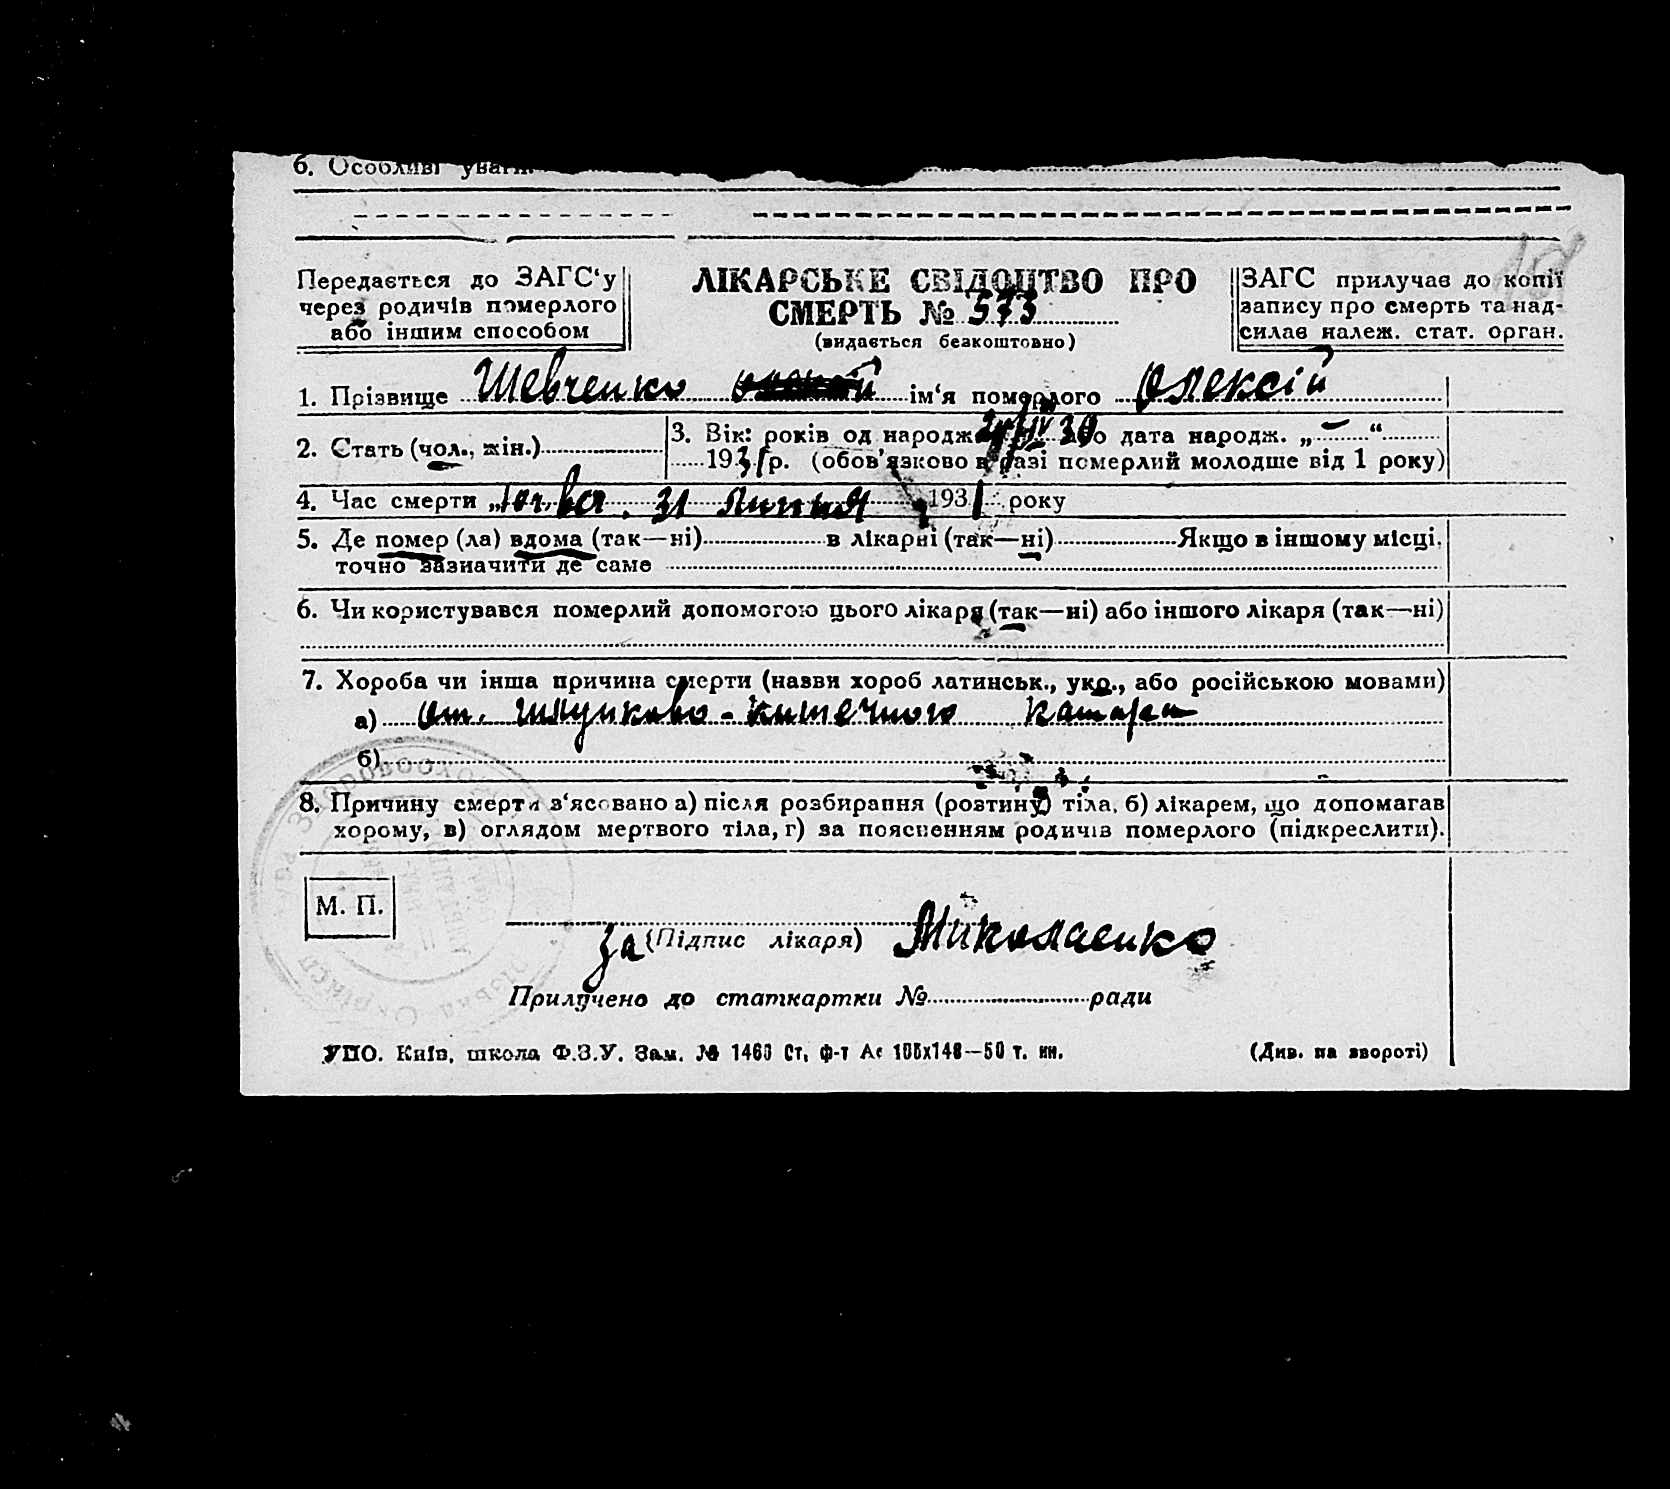 6. Особливі уваги
Передається до ЗАГС‘у
через родичів померлого
або іншим способом
ЛІКАРСЬКЕ СВІДОЦТВО ПРО
СМЕРТЬ № 573
(видається безкоштовно)
ЗАГС прилучає до копії
запису про смерть та над-
силає належ. стат. орган.
1. Прізвище Шевченко ім‘я померлого Олексій
2. Стать (чол., жін.)
3. Вік: років од народж. IV 30 або дата народж. „ “
1931 р. (обов’язково в разі померлий молодше від 1 року)
4. Час смерти „ 31 липня 1931 року
5. Де помер (ла) вдома (так—ні) в лікарні (так—ні) Якщо в іншому місці,
точно зазначити де саме
6. Чи користувався померлий допомогою цього лікаря (так—ні) або іншого лікаря (так—ні)
7. Хороба чи інша причина смерти (назви хороб латинськ., укр., або російською мовами)
а) от. шлунково-кишечного катара
б)
8. Причину смерти з‘ясовано а) після розбирання (розтину) тіла, б) лікарем, що допомагав
хорому, в) оглядом мертвого тіла, г) за поясненням родичів померлого (підкреслити).
М. П.
за (Підпис лікаря) Миколаенко
Прилучено до статкартки № ради
УПО. Київ, школа Ф.З.У. Зам. № 1460 Ст. ф-т А6 105х148—50 т. пн.
(Див. на звороті)